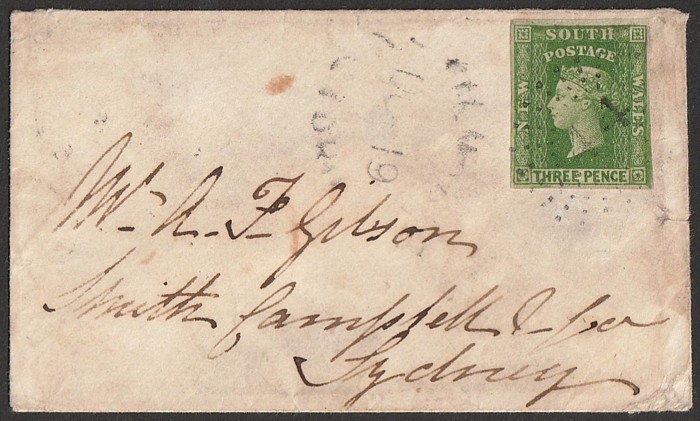 SOUTH
POSTAGE
NEW
WALES
THREE PENCE
19
Mr. A. F. Gilson
Smith Campbell & Co
Sydney